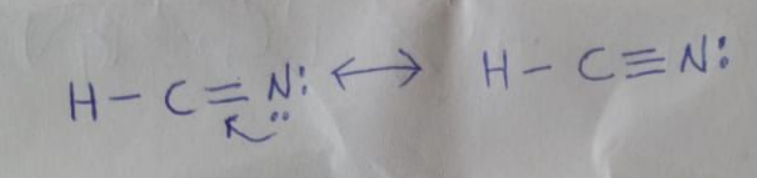 H − C = N̤: ⟷ H − C ≡ N: